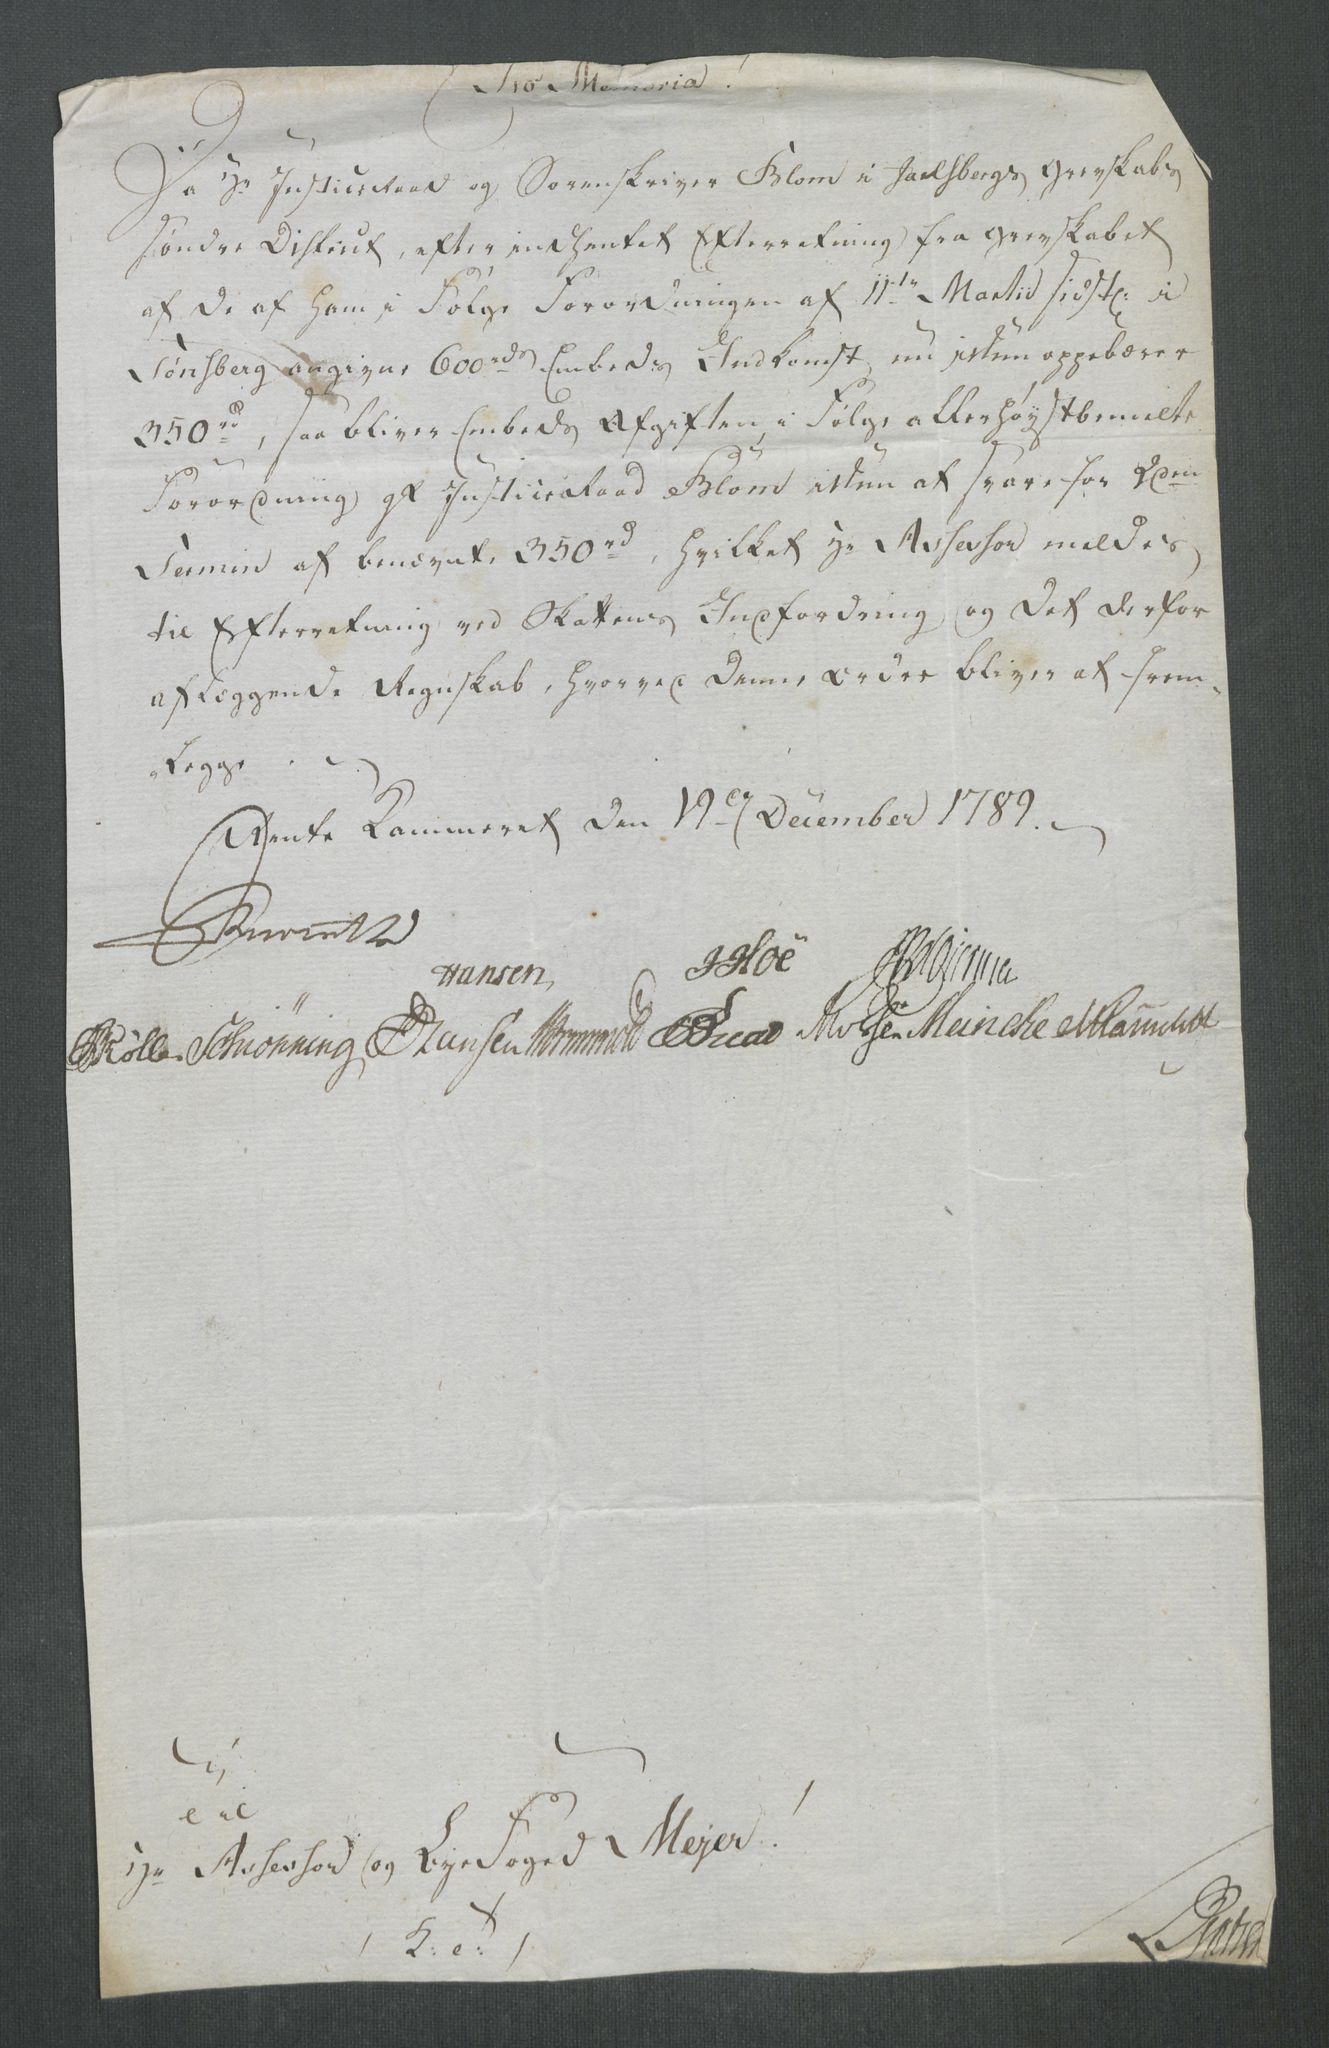 Pro Memoria!
Da Hr Justiceraad og Sorenskriver Blom i Jarlsbergs Grevskabs
søndre District, efter indhentet Efterretning fra Grevskabet
af de af ham i Følge Forordningen af 11te Martii sidstl: i
Tønsberg angivne 600rd Embeds Indkomst, nu ikkun oppebærer
350rd, saa bliver Embeds Afgiften, i Følge allerhøystbemelte
Forordning Justiceraad Blom ikkun at svare for
Termin af benævnte 350rd, hvilket Hr Assessor meldes
til Efterretning ved Skattens Indfordring og det derfor
aflæggende Regnskab, hvorved denne Ordre bliver at frem-
legge.
Rente Kammeret den 19de December 1789.
Hansen
Schiønning Hansen Meincke
Til
Hr Assessor og Byefoged Mejer!